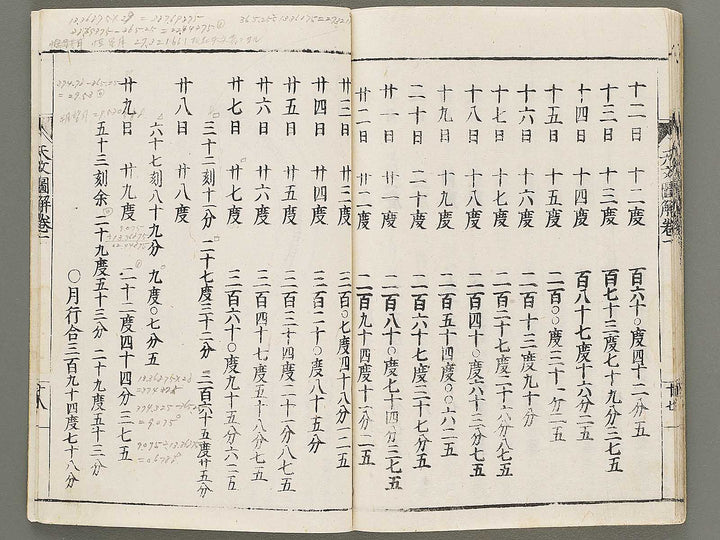 天文圖解卷二
十二日 十二度 百六十〇度四十二分五
十三日 十三度 百七十三度七十九分三七五
十四日 十四度 百八十七度十六分二五
十五日 十五度 二百〇〇度
十六日 十六度 二百十三度九十分
十七日 十七度 二百二十七度二十六分八七五
十八日 十八度 二百四十〇度六十三分七五
十九日 十九度 二百五十四度〇〇六二五
二十日 二十度 二百六十七度三十七分五
廿一日 廿一度 二百八十〇度七十四分三七五
廿二日 廿二度 二百九十四度十一分二五
廿三日 廿三度 三百〇七度四十八分一二五
廿四日 廿四度 三百二十〇度八十五分
廿五日 廿五度 三百三十四度二十一分八七五
廿六日 廿六度 三百四十七度五十八分七五
廿七日 廿七度 三百六十〇度九十五分六二五
三十二刻十一分 二十七度三十二分 三百六十五度廿五分
廿八日 廿八度
六十七刻八十九分 九度〇七分五
廿九日 廿九度 二十二度四十四分三七五
五十三刻余 二十九度五十三分 二十九度五十三分
〇月行合三百九十四度七十八分
天文圖解卷二